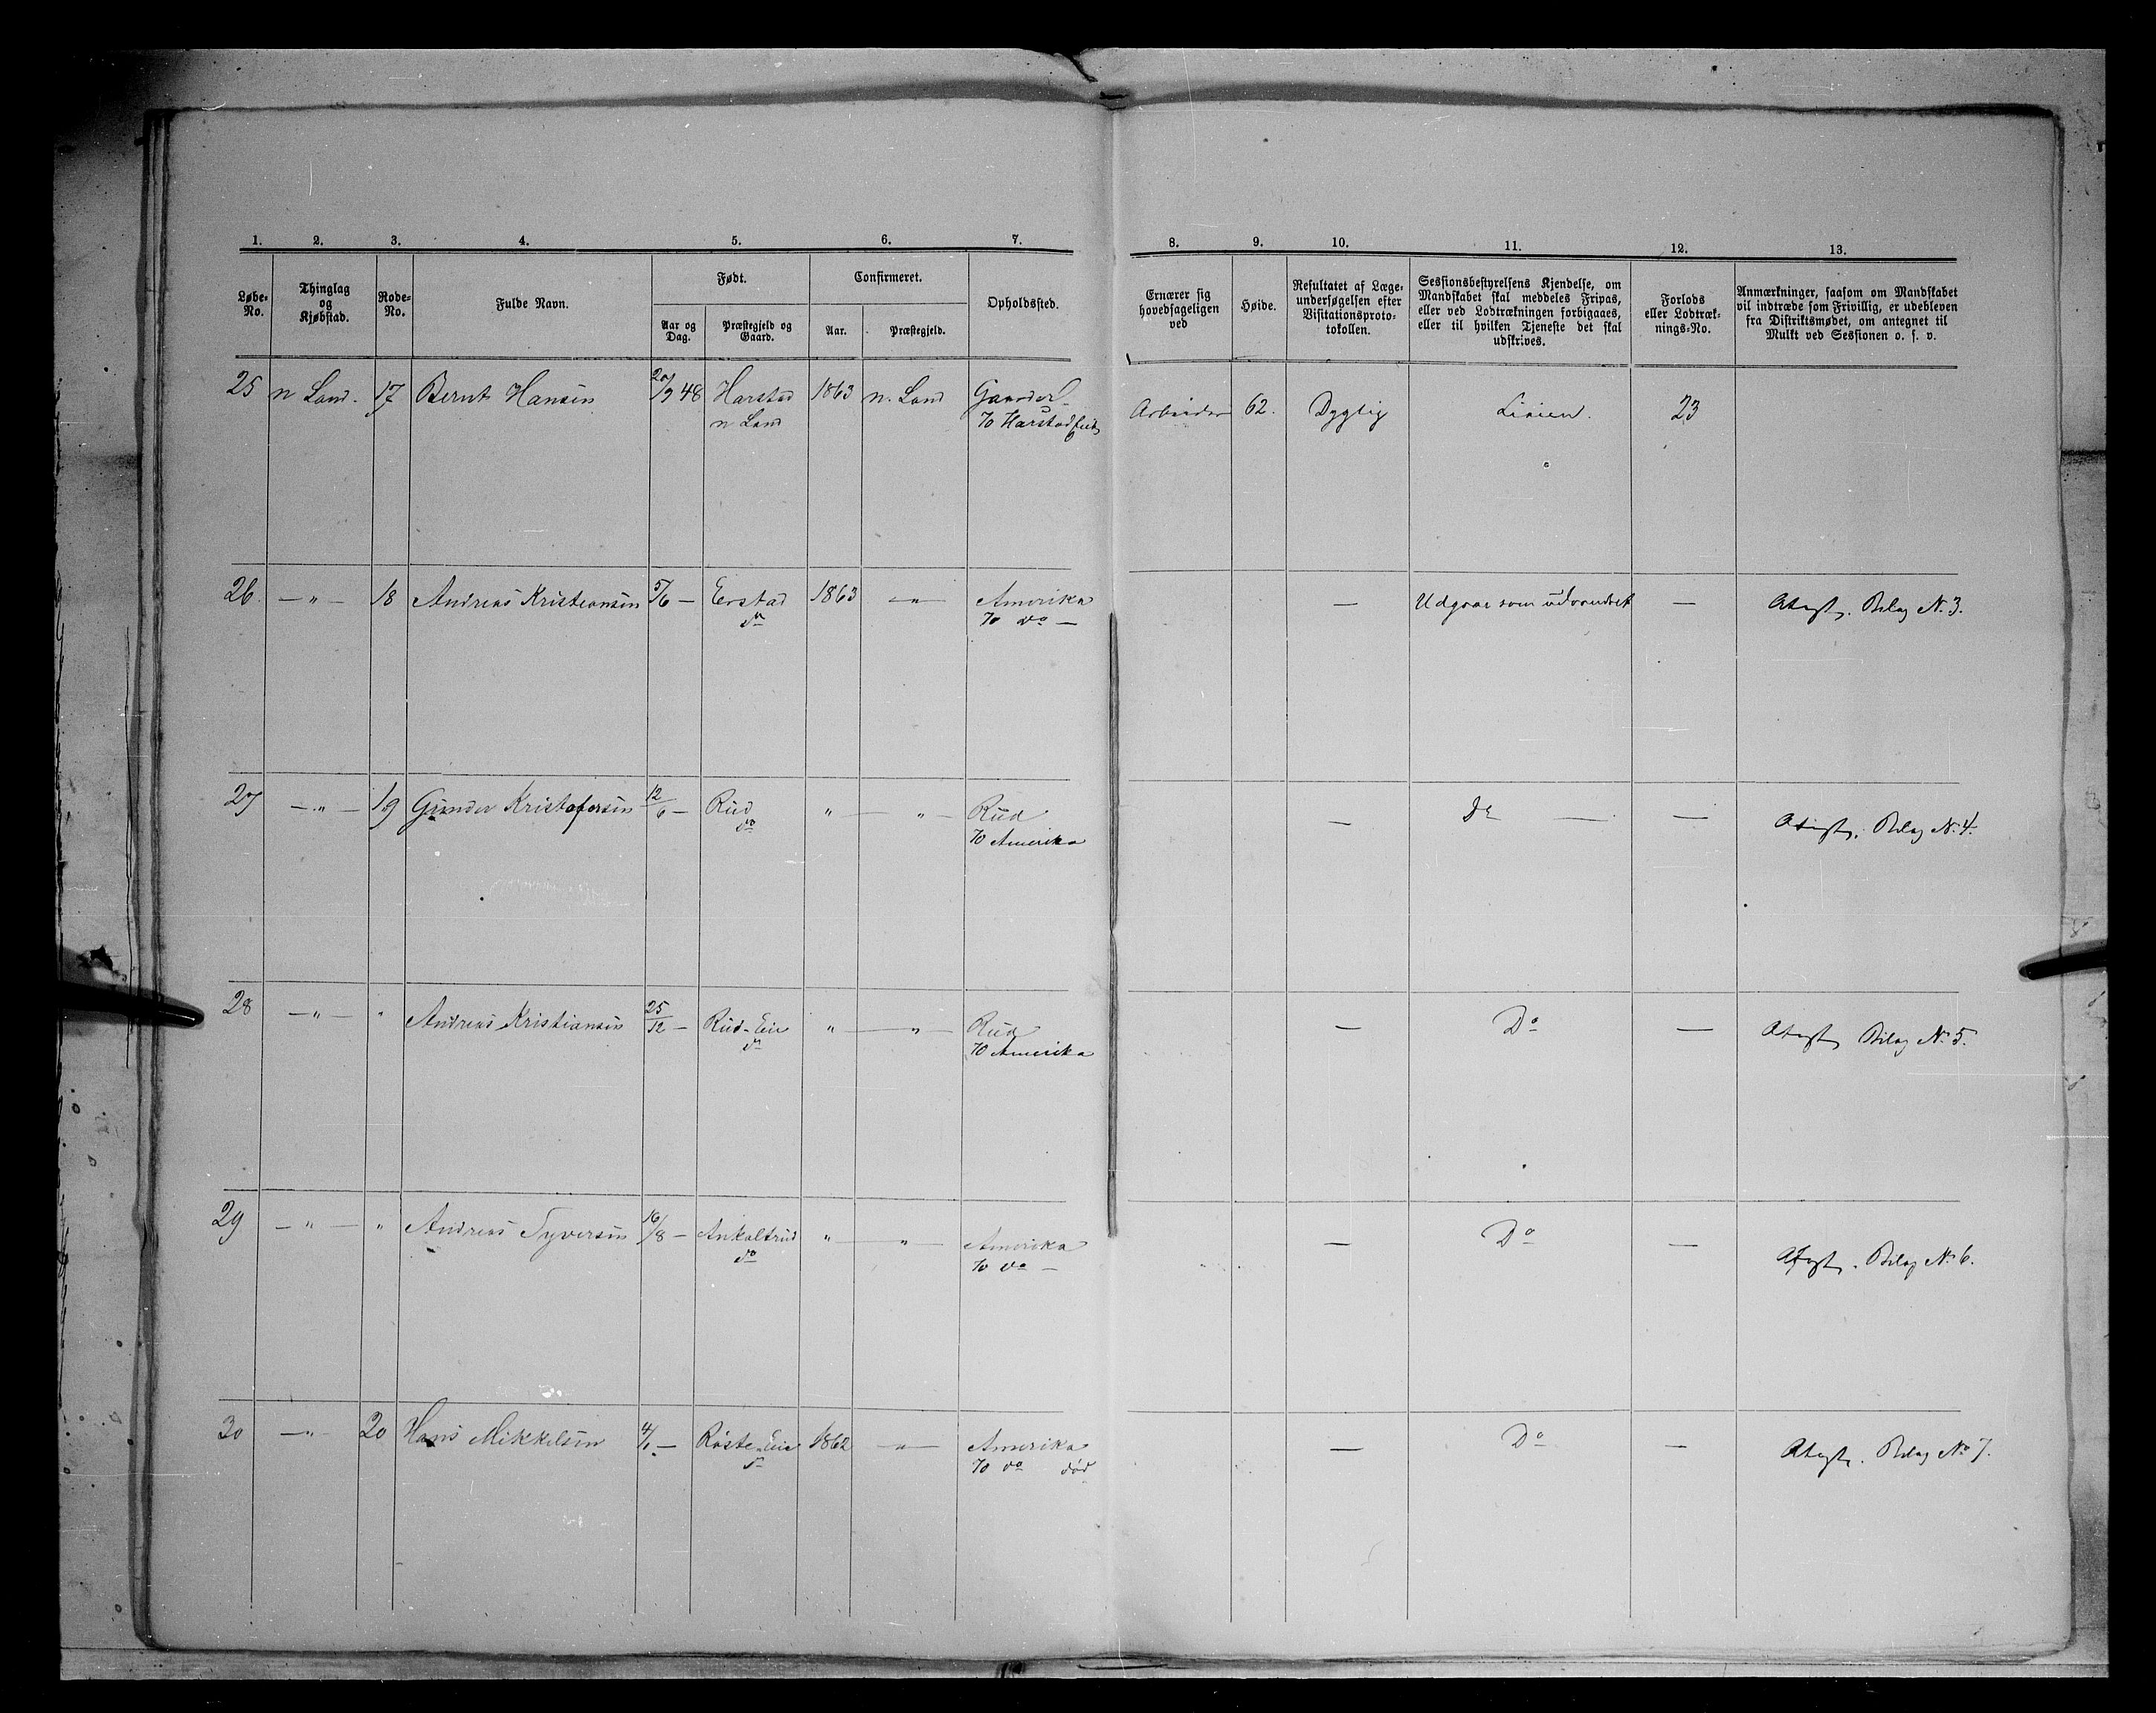 1. 2. 3. 4. 5. 6. 7. 8. 9. 10. 11. 12. 13.
Løbe-No.
Thinglag og Kjøbstad.
Rode-No.
Fulde Navn.
Født.
Aar og Dag.
Præstegjeld og Gaard.
Confirmeret.
Aar.
Præstegjeld.
Opholdssted.
Ernærer sig hovedsageligen ved
Høide.
Resultatet af Læge-undersøgelsen efter Visitationsproto-tokollen.
Sessionsbestyrelsens Kjendelse, om Mandskabet skal meddeles Fripas, eller ved Lodtrækningen forbigaaes, eller til hvilken Tjeneste det skal udskrives.
Forlods eller Lodtræk-nings-No.
Anmærkninger, saasom om Mandskabet vil indtræde som Frivillig, er udebleven fra Distriktsmødet, om antegnet til Mulkt ved Sessionen o. s. v.
25 n Land. 17 Bernt Hansen 20/9 48 Harstad 1863 n. Land 62. Dygtig Linien. 23
n Land
26. — " — 18 Andreas Kristiansen 5/6 — Eerstad 1863 — " — Amerika — Udgaar som udvandret — Attest. Bilag N. 3.
do 70 do —
27 — " — 19 Gunder Kristofersen 12/6 — Rud " — " — Rud — Do — — Attest. Bilag N. 4.
do 70 Amerika
28 — " — " Andreas Kristiansen 25/12 — Rud-Eie " — " — Rud — Do — Attest Bilag N. 5.
do 70 Amerika
29 — " — " Andreas Syversen 16/8 — " — " — Amerika — Do — Attest. Bilag N. 6.
do 70 do —
30 — " — 20 Hans Mikkelsen 4/1 — Røste-Eie 1862 — " — Amerika — Do — Attest. Bilag No 7.
do 70 do død